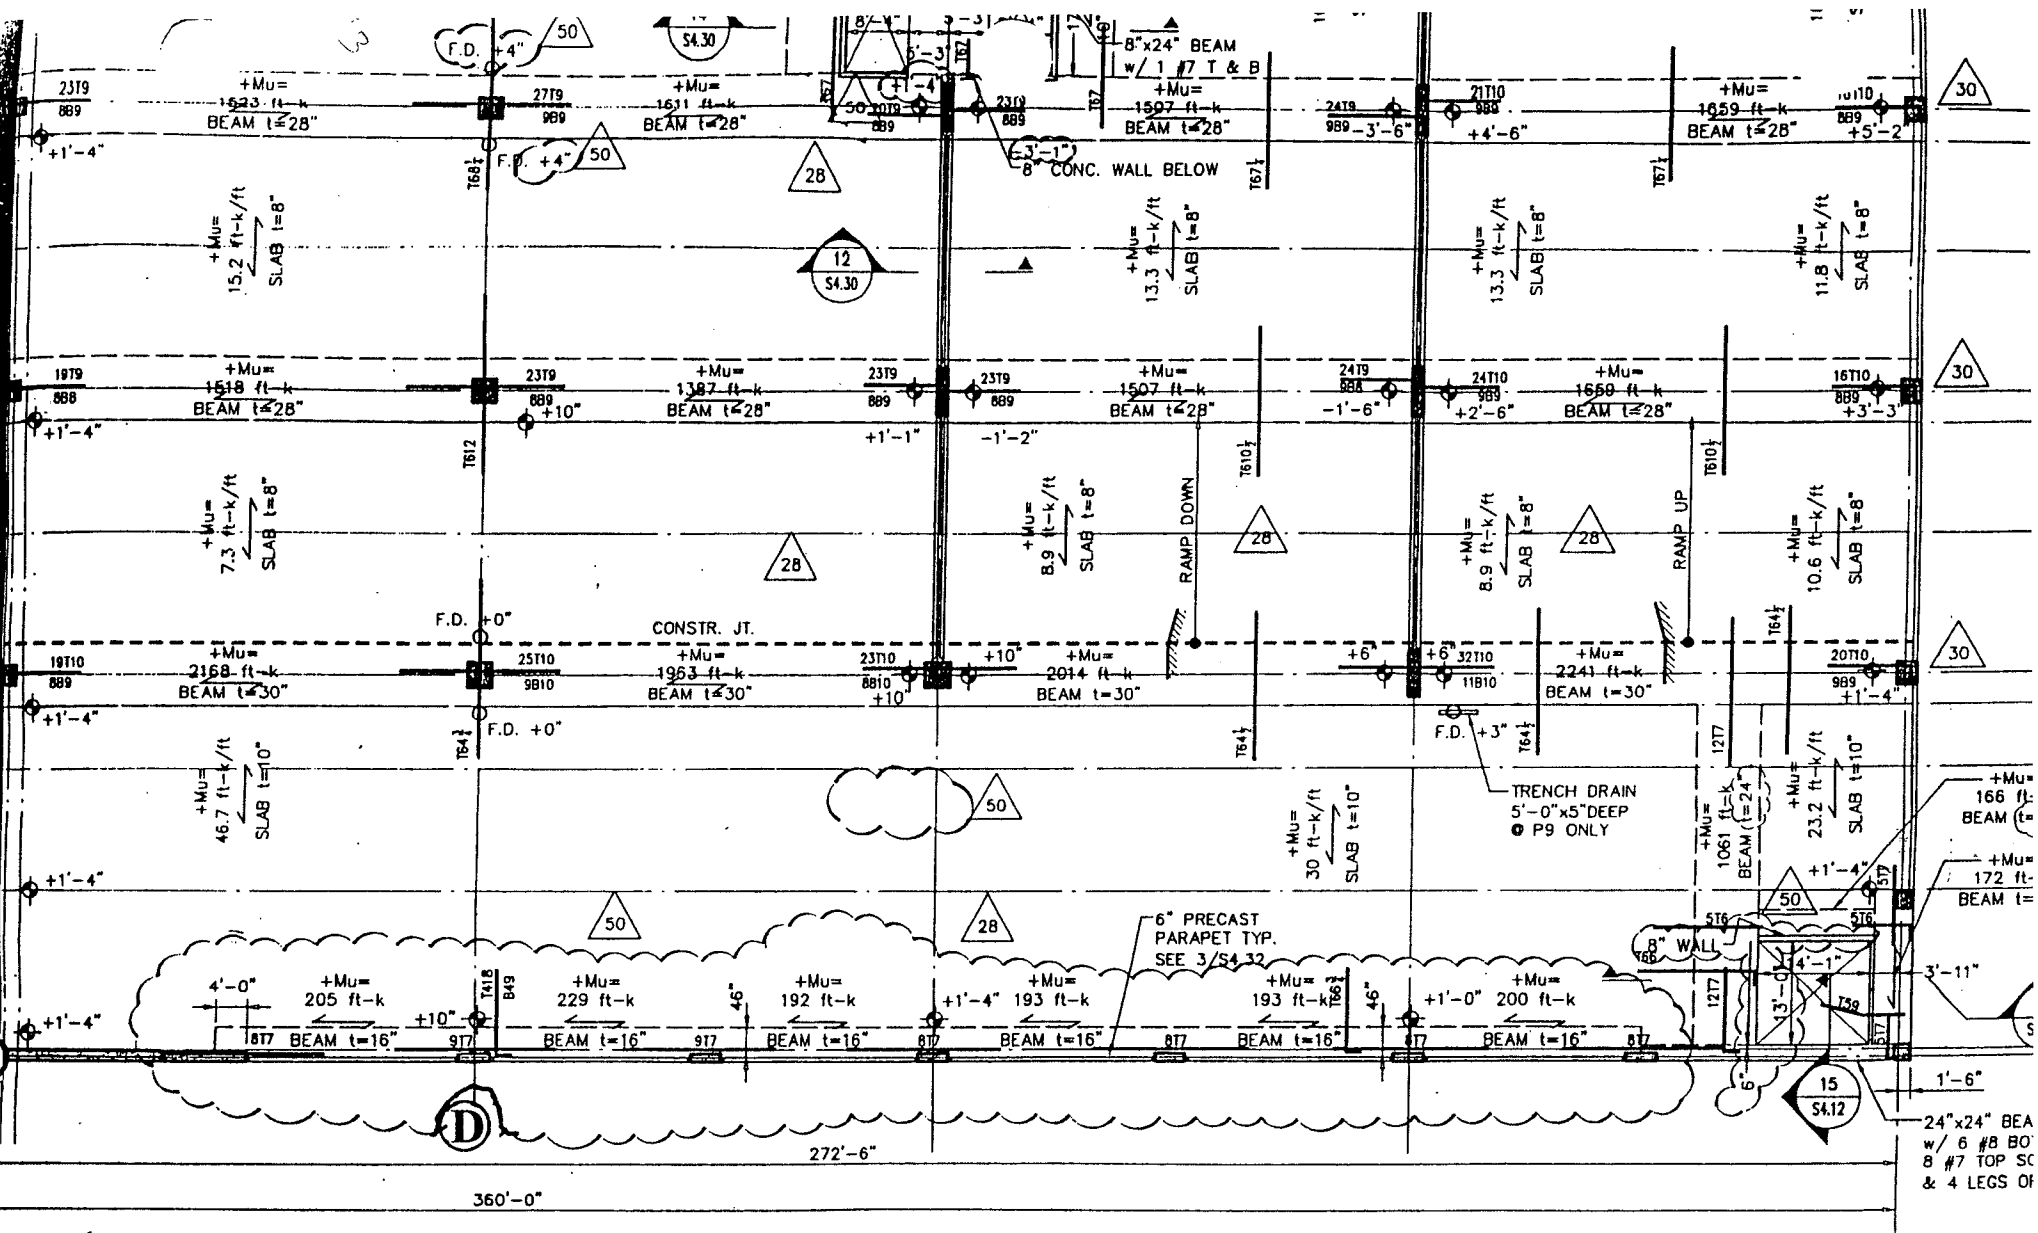 F.D. +4"
50
S4.30
8'-4"
5'-3"
T67
8"x24" BEAM
w/ 1 #7 T & B
23T9
8B9
+Mu=
1523 ft-k
BEAM t=28"
27T9
9B9
+Mu=
1611 ft-k
BEAM t=28"
50
20T9
8B9
+1'-4
23T9
8B9
T67
+Mu=
1507 ft-k
BEAM t=28"
24T9
9B9
-3'-6"
21T10
9B9
+4'-6"
+Mu=
1659 ft-k
BEAM t=28"
8B9
+5'-2"
30
+1'-4"
T68½
F.D. +4"
50
28
-3'-1"
8" CONC. WALL BELOW
T67½
T67½
+Mu=
15.2 ft-k/ft
SLAB t=8"
12
S4.30
+Mu=
13.3 ft-k/ft
SLAB t=8"
+Mu=
13.3 ft-k/ft
SLAB t=8"
+Mu=
11.8 ft-k/ft
SLAB t=8"
19T9
8B8
+Mu=
1518 ft-k
BEAM t=28"
23T9
8B9
+10"
+Mu=
1387 ft-k
BEAM t=28"
23T9
8B9
+1'-1"
23T9
8B9
-1'-2"
+Mu=
1507 ft-k
BEAM t=28"
24T9
9B8
-1'-6"
24T10
9B9
+2'-6"
+Mu=
1659 ft-k
BEAM t=28"
16T10
8B9
+3'-3"
30
+1'-4"
T612
T610½
T610½
+Mu=
7.3 ft-k/ft
SLAB t=8"
28
+Mu=
8.9 ft-k/ft
SLAB t=8"
RAMP DOWN
28
+Mu=
8.9 ft-k/ft
SLAB t=8"
28
RAMP UP
+Mu=
10.6 ft-k/ft
SLAB t=8"
F.D. +0"
CONSTR. JT.
T64½
19T10
8B9
+Mu=
2168 ft-k
BEAM t=30"
25T10
9B10
+Mu=
1963 ft-k
BEAM t=30"
23T10
8B10
+10"
+10"
+Mu=
2014 ft-k
BEAM t=30"
+6"
+6"
32T10
11B10
+Mu=
2241 ft-k
BEAM t=30"
20T10
9B9
+1'-4"
30
+1'-4"
F.D. +0"
T64½
F.D. +3"
T64½
12T7
+Mu=
46.7 ft-k/ft
SLAB t=10"
50
+Mu=
30 ft-k/ft
SLAB t=10"
TRENCH DRAIN
5'-0"x5"DEEP
@ P9 ONLY
+Mu=
1061 ft-k
BEAM t=24"
+Mu=
23.2 ft-k/ft
SLAB t=10"
+Mu=
166 ft-
BEAM (t=
+1'-4"
50
28
6" PRECAST
PARAPET TYP.
SEE 3/S4.32
+1'-4"
50
5T7
+Mu=
172 ft-
BEAM t=
5T6
5T6
8" WALL
T66
14'-1"
3'-11"
4'-0"
+Mu=
205 ft-k
BEAM t=16"
T418
B49
+Mu=
229 ft-k
BEAM t=16"
46"
+Mu=
192 ft-k
BEAM t=16"
+1'-4"
+Mu=
193 ft-k
BEAM t=16"
193 ft-k
BEAM t=16"
46"
+1'-0"
+Mu=
200 ft-k
BEAM t=16"
12T7
13'-0"
T59
+1'-4"
+10"
8T7
9T7
9T7
8T7
8T7
8T7
8T7
5T7
6"
D
15
S4.12
1'-6"
24"x24" BEA
w/ 6 #8 BO
8 #7 TOP
& 4 LEGS
272'-6"
360'-0"